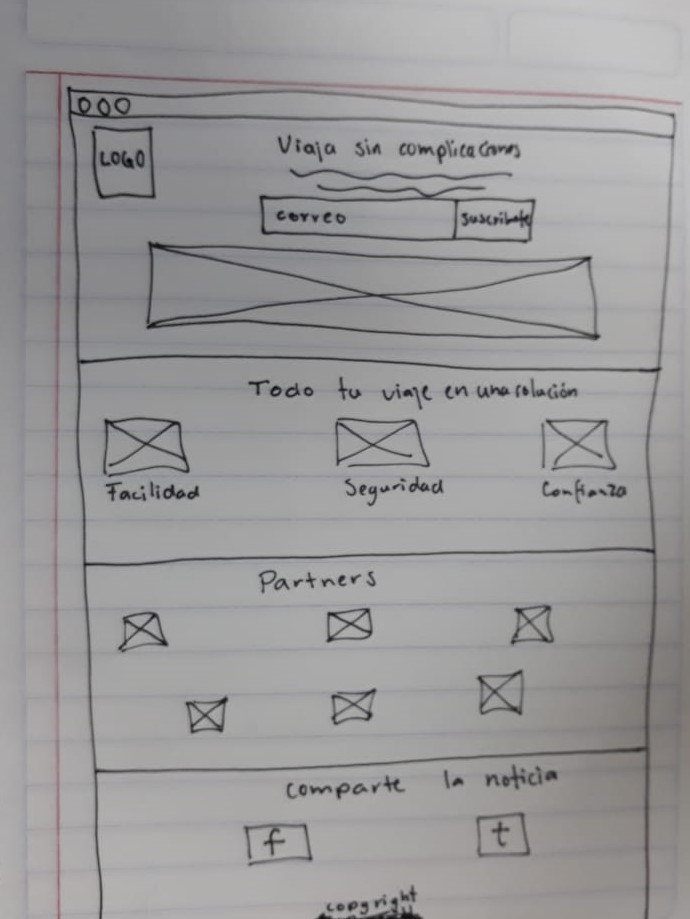 LOGO
Viaja sin complicaciones
correo
suscribete
Todo tu viaje en una solución
Facilidad
Seguridad
Confianza
Partners
comparte la noticia
f
t
copyright